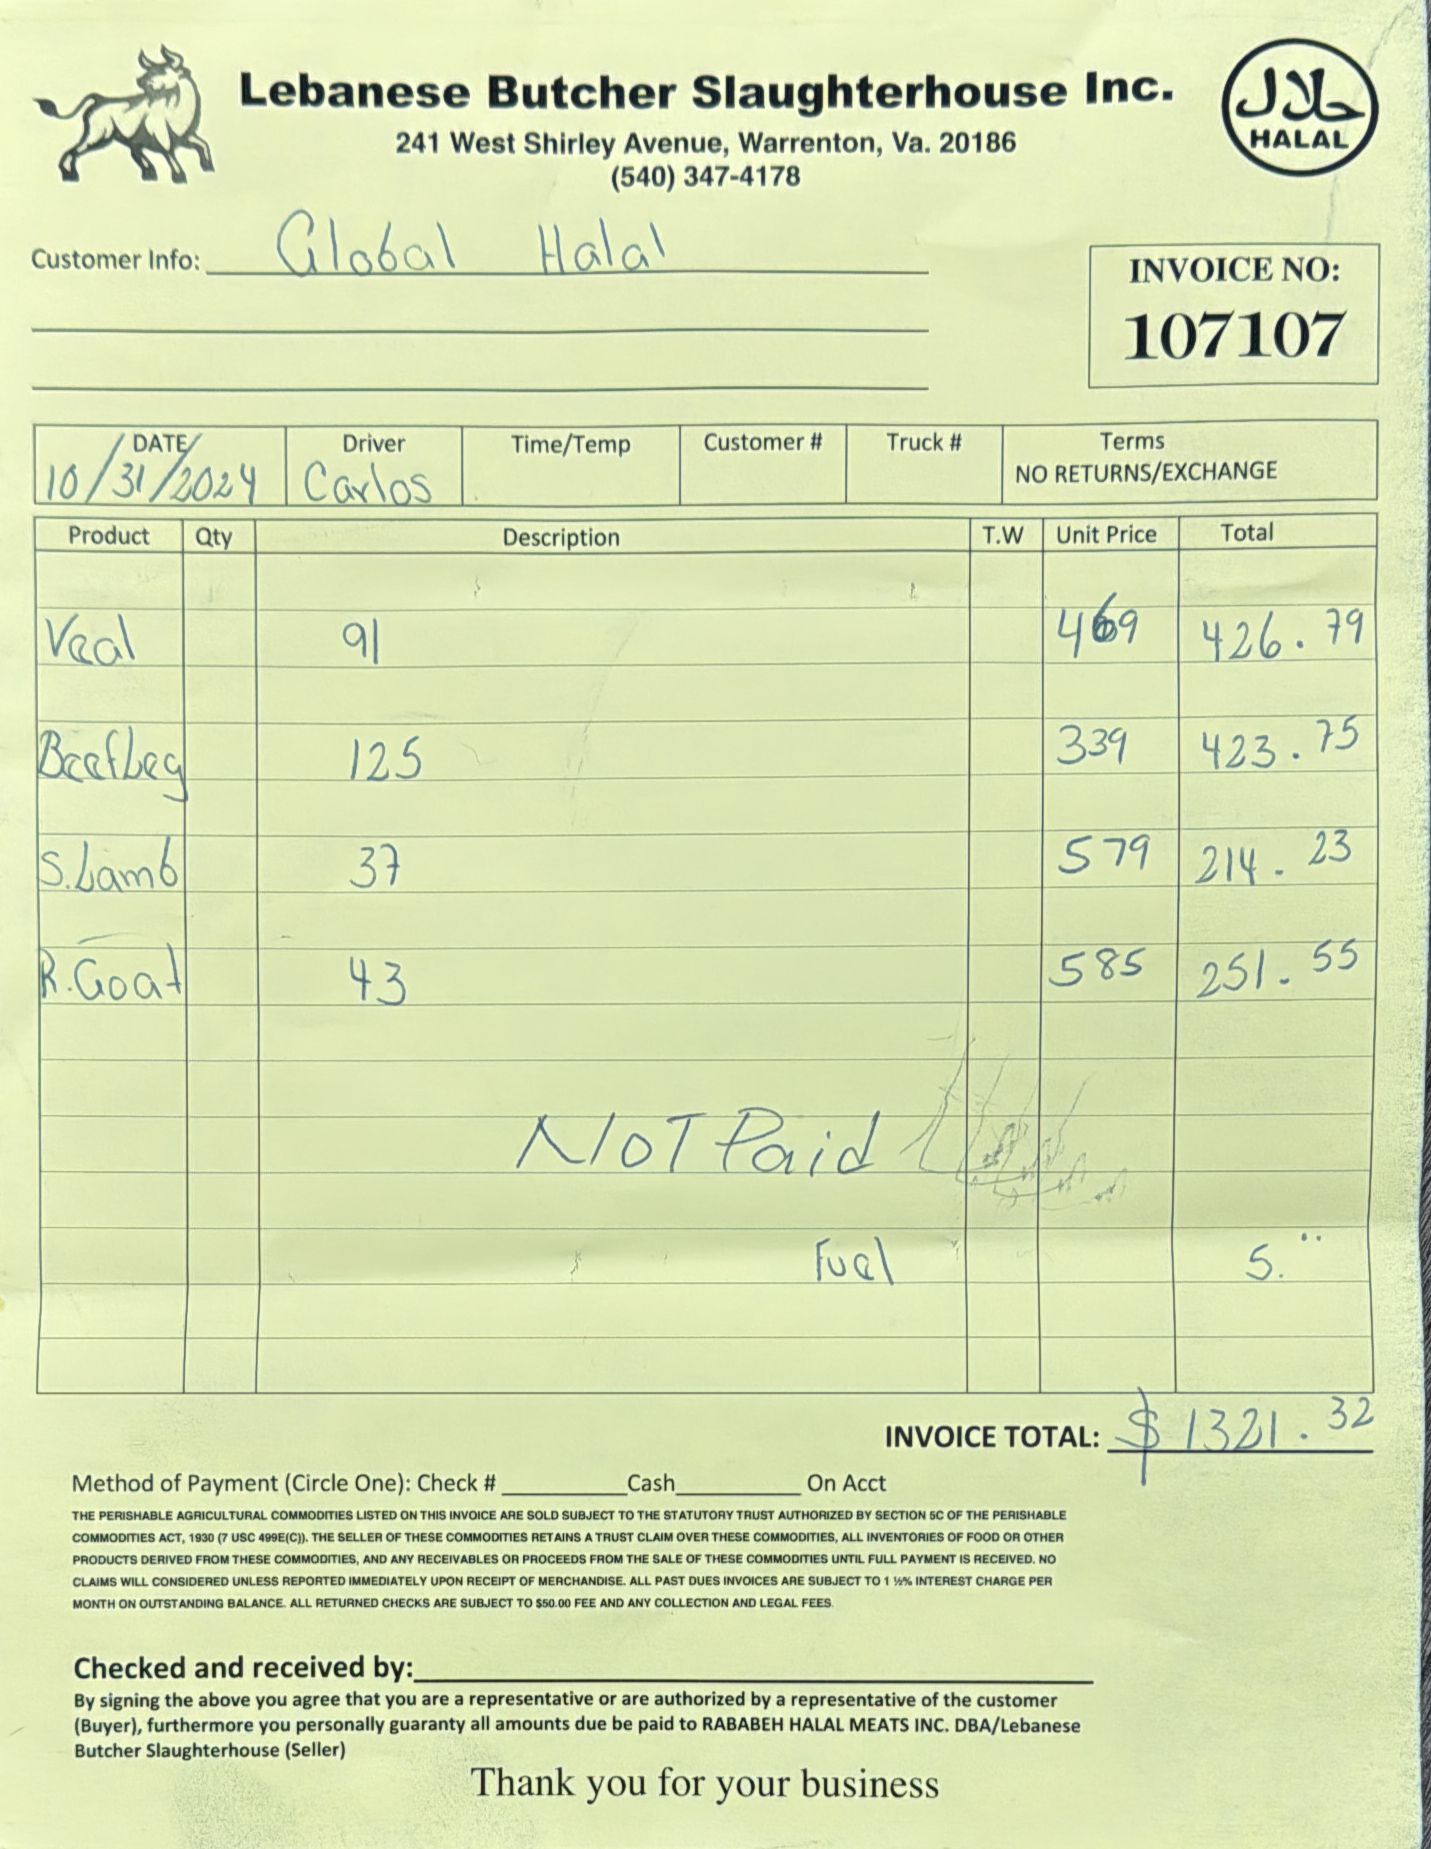 Lebanese Butcher Slaughterhouse Inc.
241 West Shirley Avenue, Warrenton, Va. 20186
(540) 347-4178
حلال
HALAL
Customer Info: Global Halal
INVOICE NO:
107107
DATE Driver Time/Temp Customer # Truck # Terms
10/31/2024 Carlos NO RETURNS/EXCHANGE
Product Qty Description T.W Unit Price Total
Veal 91 469 426.79
Beef Leg 125 339 423.75
S.Lamb 37 579 214.23
R.Goat 43 585 251.55
NOT Paid
Fuel 5.
INVOICE TOTAL: $1321.32
Method of Payment (Circle One): Check # Cash On Acct
THE PERISHABLE AGRICULTURAL COMMODITIES LISTED ON THIS INVOICE ARE SOLD SUBJECT TO THE STATUTORY TRUST AUTHORIZED BY SECTION 5C OF THE PERISHABLE
COMMODITIES ACT, 1930 (7 USC 499E(C)). THE SELLER OF THESE COMMODITIES RETAINS A TRUST CLAIM OVER THESE COMMODITIES, ALL INVENTORIES OF FOOD OR OTHER
PRODUCTS DERIVED FROM THESE COMMODITIES, AND ANY RECEIVABLES OR PROCEEDS FROM THE SALE OF THESE COMMODITIES UNTIL FULL PAYMENT IS RECEIVED. NO
CLAIMS WILL CONSIDERED UNLESS REPORTED IMMEDIATELY UPON RECEIPT OF MERCHANDISE. ALL PAST DUES INVOICES ARE SUBJECT TO 1 ½% INTEREST CHARGE PER
MONTH ON OUTSTANDING BALANCE. ALL RETURNED CHECKS ARE SUBJECT TO $50.00 FEE AND ANY COLLECTION AND LEGAL FEES.
Checked and received by:
By signing the above you agree that you are a representative or are authorized by a representative of the customer
(Buyer), furthermore you personally guaranty all amounts due be paid to RABABEH HALAL MEATS INC. DBA/Lebanese
Butcher Slaughterhouse (Seller)
Thank you for your business